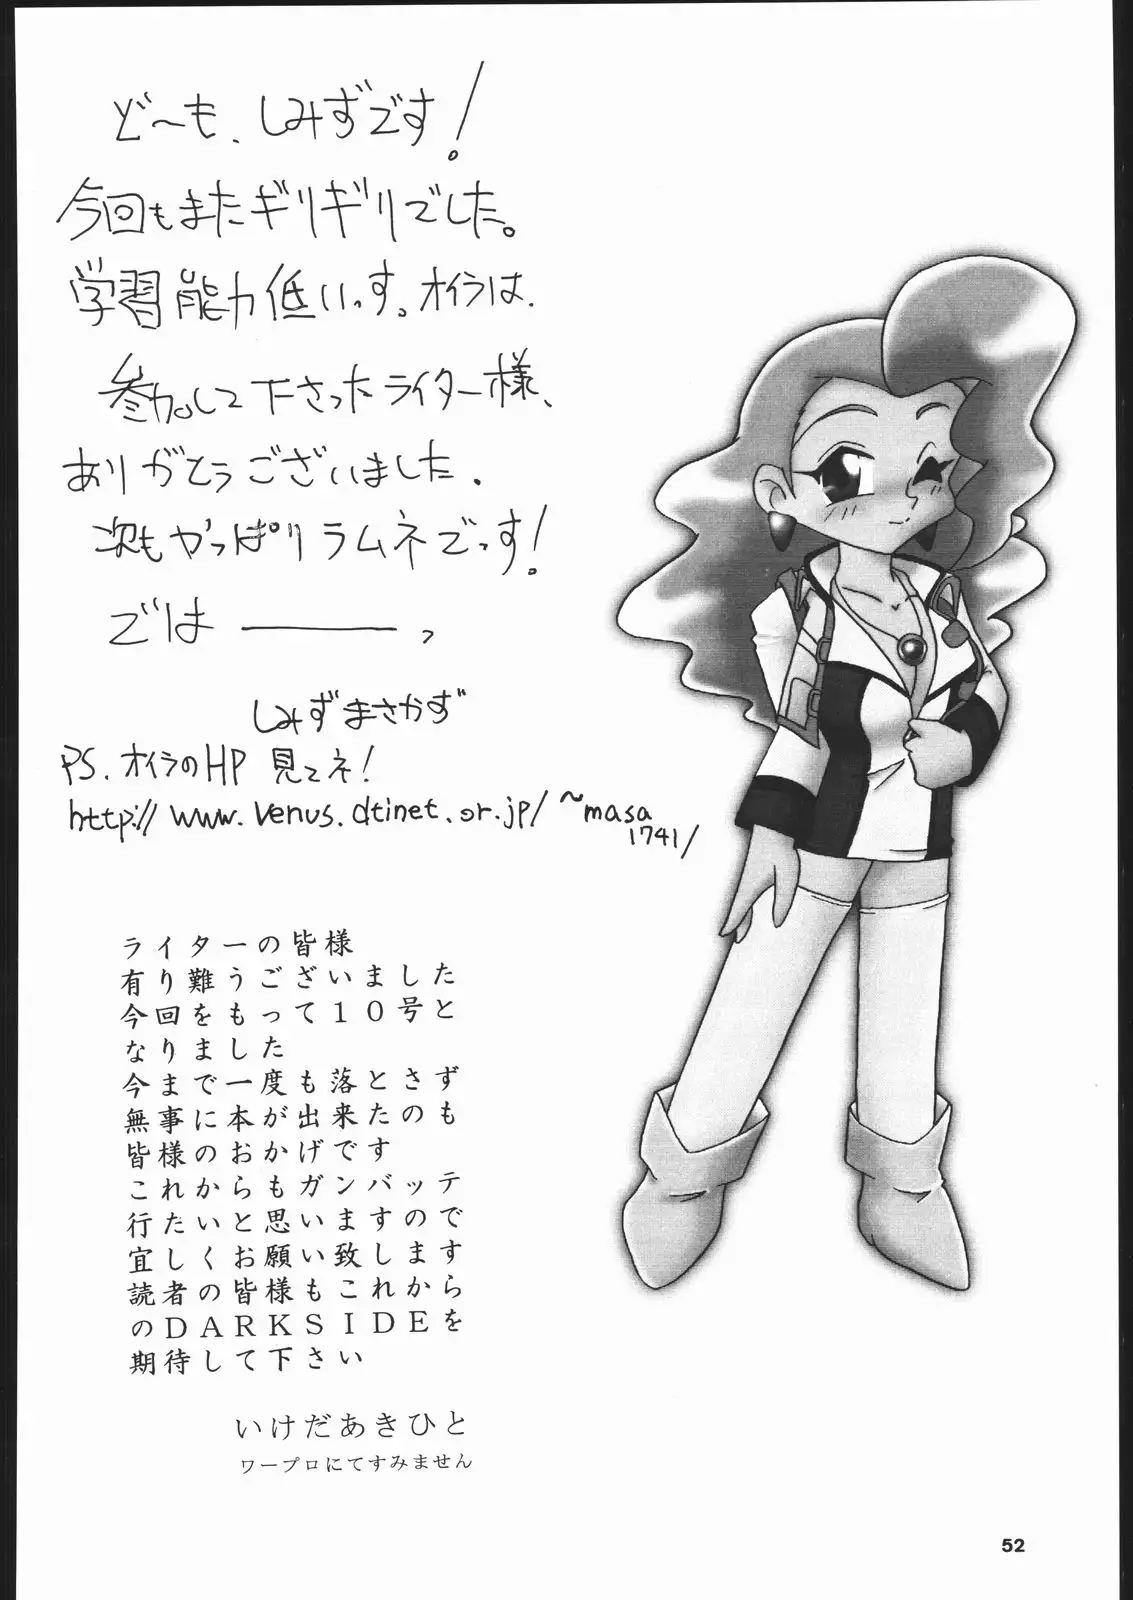 ど〜も、しみずです!
今回もまたギリギリでした。
学習能力低いっす。オイラは.
参加して下さったライター様、
ありがとうございました.
次もやっぱりラムネでっす!
では――――っ
しみずまさかず
PS. オイラのHP 見てネ!
http://www.venus.dtinet.or.jp/~masa
1741/
ライターの皆様
有り難うございました
今回をもって10号と
なりました
今まで一度も落とさず
無事に本が出来たのも
皆様のおかげです
これからもガンバッテ
行たいと思いますので
宜しくお願い致します
読者の皆様もこれから
のDARKSIDEを
期待して下さい
いけだあきひと
ワープロにてすみません
52